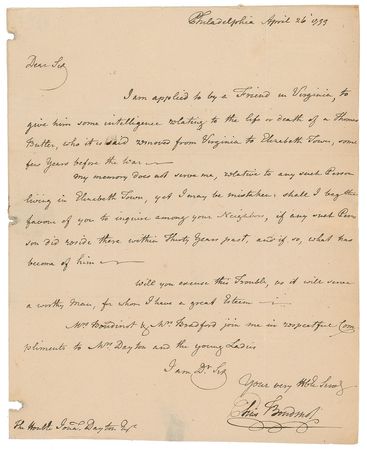 Philadelphia April 26th 1793
Dear Sir
I am applied to by a Friend in Virginia, to
give him some intelligence relating to the life or death of a Thomas
Butler, who it is said removed from Virginia to Elizabeth Town, some
few Years before the War —
My memory does not serve me, relative to any such Person
living in Elizabeth Town, yet I may be mistaken: shall I beg the
favour of you to inquire among your Neighbors, if any such Per-
son did reside there within Thirty Years past, and if so, what has
become of him —
Will you excuse this Trouble, as it will serve
a worthy Man, for whom I have a great Esteem —
Mrs Boudinot & Mrs Bradford join me in respectful Com
pliments to Mrs Dayton and the young Ladies
I am Dr Sir
Your very Hble Servt
Elias Boudinot
The Honble Jona. Dayton Esqr